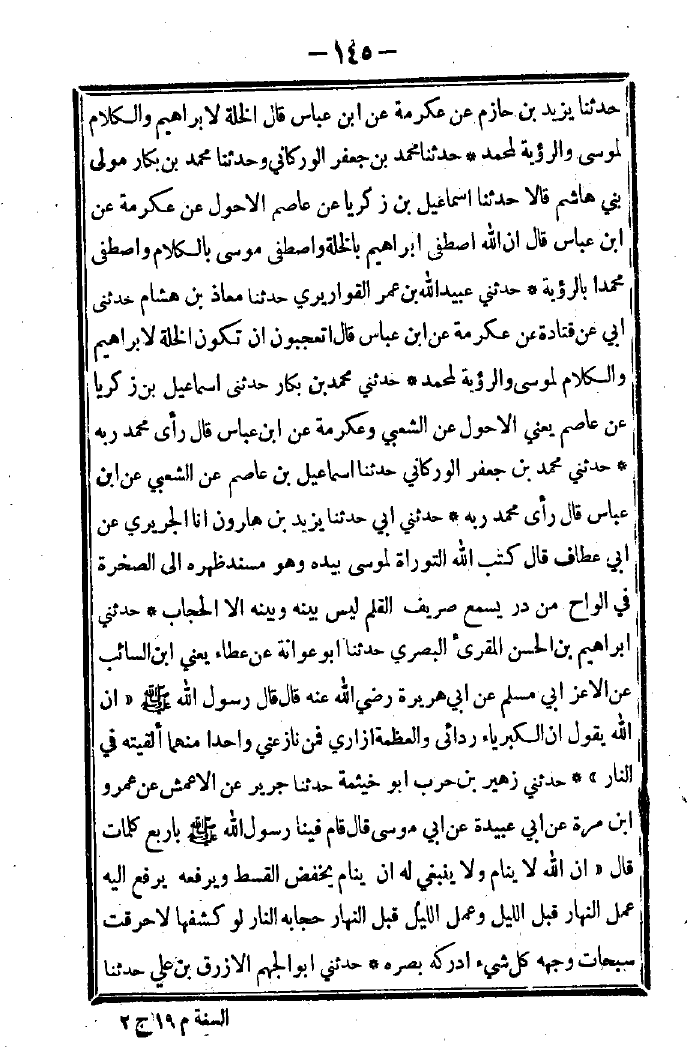 — ١٤٥ —
حدثنا يزيد بن حازم عن عكرمة عن ابن عباس قال الخلة لابراهيم والكلام
لموسى والرؤية لمحمد * حدثنا محمد بن جعفر الوركاني وحدثنا محمد بن بكار مولى
بني هاشم قالا حدثنا اسماعيل بن زكريا عن عاصم الاحول عن عكرمة عن
ابن عباس قال ان الله اصطفى ابراهيم بالخلة واصطفى موسى بالكلام واصطفى
محمدا بالرؤية * حدثني عبيد الله بن عمر القواريري حدثنا معاذ بن هشام حدثني
ابي عن قتادة عن عكرمة عن ابن عباس قال اتعجبون ان تكون الخلة لابراهيم
والكلام لموسى والرؤية لمحمد * حدثني محمد بن بكار حدثني اسماعيل بن زكريا
عن عاصم يعني الاحول عن الشعبي وعكرمة عن ابن عباس قال رأى محمد ربه
* حدثني محمد بن جعفر الوركاني حدثنا اسماعيل بن عاصم عن الشعبي عن ابن
عباس قال رأى محمد ربه * حدثني ابي حدثنا يزيد بن هارون انا الجريري عن
ابي عطاف قال كتب الله التوراة لموسى بيده وهو مسند ظهره الى الصخرة
في الواح من در يسمع صريف القلم ليس بينه وبينه الا الحجاب * حدثني
ابراهيم بن الحسن المقرئ البصري حدثنا ابو عوانة عن عطاء يعني ابن السائب
عن الاعز ابي مسلم عن ابي هريرة رضي الله عنه قال قال رسول الله ﷺ « ان
الله يقول ان الكبرياء ردائى والعظمة ازاري فمن نازعني واحدا منهما ألقيته في
النار » * حدثني زهير بن حرب ابو خيثمة حدثنا جرير عن الاعمش عن عمرو
ابن مرة عن ابي عبيدة عن ابي موسى قال قام فينا رسول الله ﷺ باربع كلمات
قال « ان الله لا ينام ولا ينبغي له ان ينام يخفض القسط ويرفعه يرفع اليه
عمل النهار قبل الليل وعمل الليل قبل النهار حجابه النار لو كشفها لاحرقت
سبحات وجهه كل شيء ادركه بصره * حدثني ابو الجهم الازرق بن علي حدثنا
السنة م ١٩ ج ٢